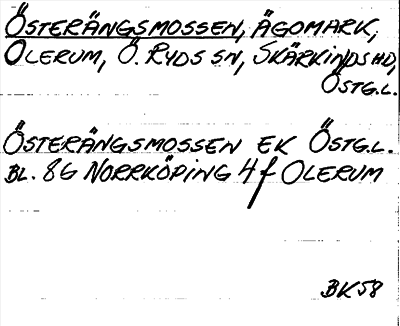 ÖSTERÄNGSMOSSEN, ÄGOMARK,
OLERUM, Ö. RYDS SN, SKÄRKINDS HD,
ÖSTG.L.
ÖSTERÄNGSMOSSEN EK ÖSTG.L.
BL. 8G NORRKÖPING 4f OLERUM
BK58